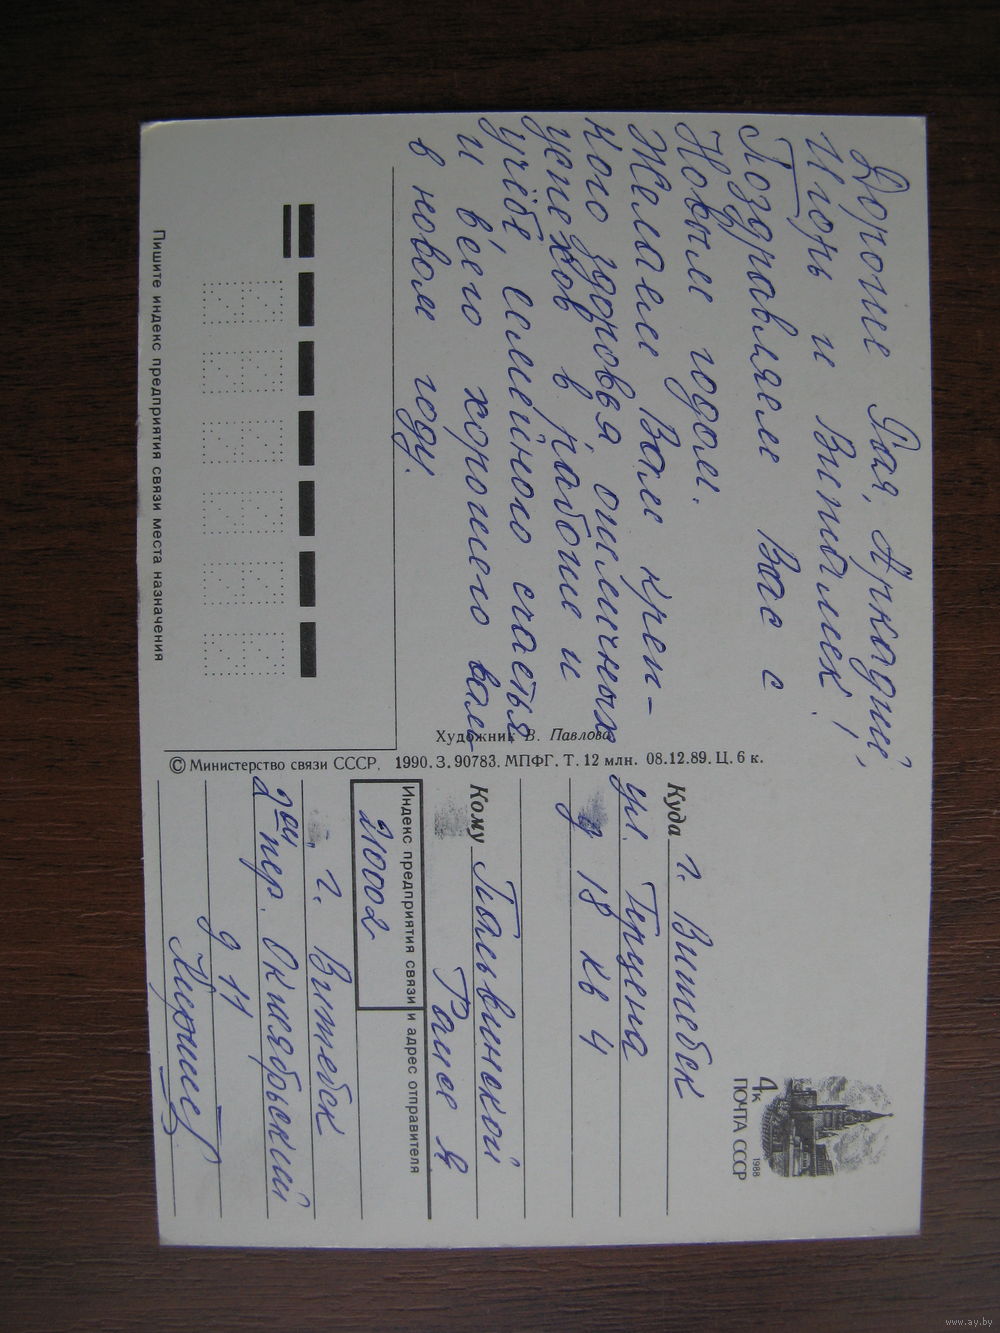 Дорогие Рая, Аркадий,
Игорь и Виталик!
Поздравляем Вас с
Новым годом.
Желаем Вам креп-
кого здоровья, отличных
успехов в работе и
учёбе, семейного счастья
и всего хорошего вам
в новом году.
Пишите индекс предприятия связи места назначения
Художник В. Павлова
© Министерство связи СССР. 1990. З. 90783. МПФГ. Т. 12 млн. 08.12.89. Ц. 6 к.
4к
ПОЧТА СССР
1988
Куда г. Витебск
ул. Герцена
д 18 кв 4
Кому Гальвинской
Раисе Я
Индекс предприятия связи и адрес отправителя
210002
г. Витебск
2ой пер. Октябрьский
д 11
www.ay.by